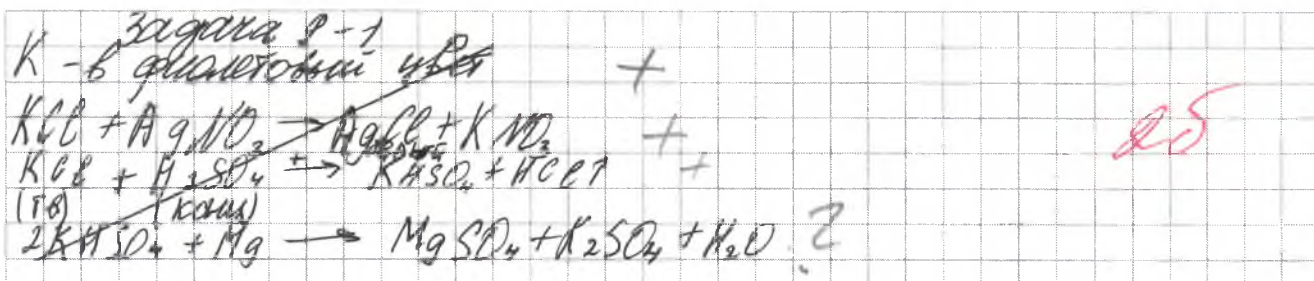 Задача 9-1
К - в фиолетовый цвет +
KCl + AgNO3 → AgCl + KNO3 +
KCl + H2SO4 → KHSO4 + HCl↑ +
(тв) (конц)
2KHSO4 + Mg → MgSO4 + K2SO4 + H2O ?
2б